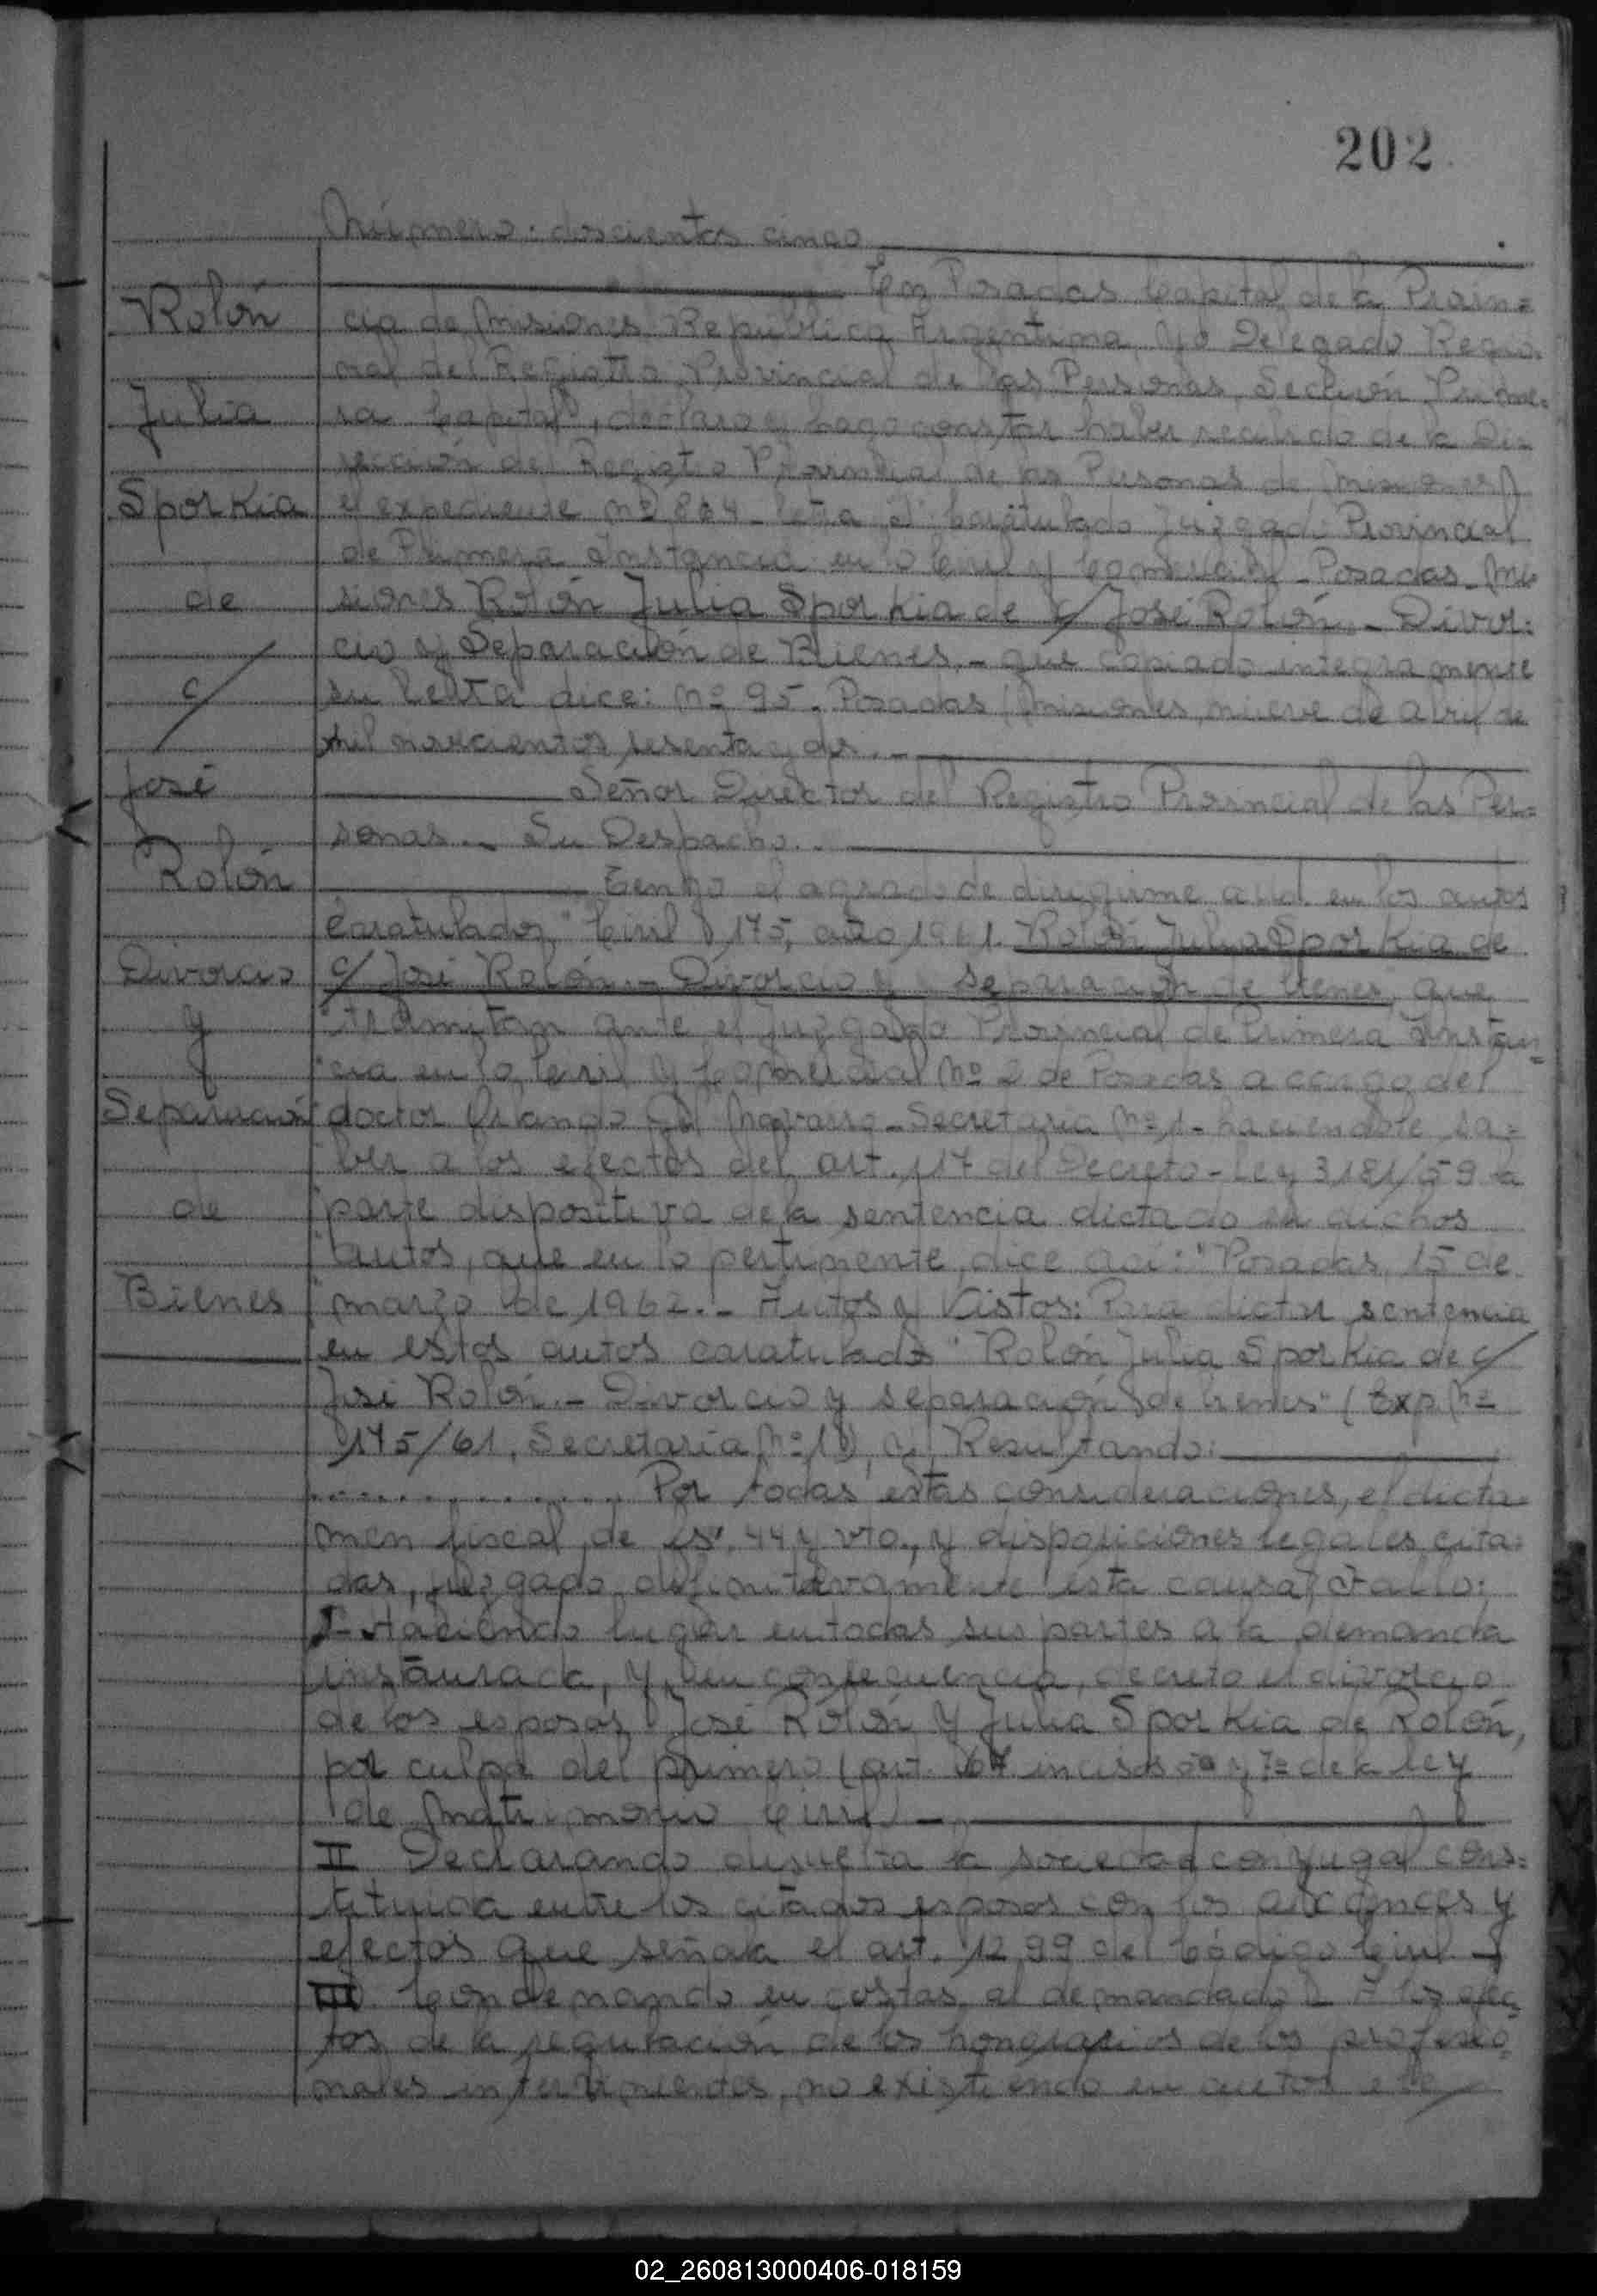 202
Número: doscientos cinco
Rolón
Julia
Sporkia
de
c/
José
Rolón
Divorcio
y
Separación
de
Bienes
En Posadas Capital de la Provin=
cia de Misiones República Argentina, Yo Delegado Regio-
nal del Registro Provincial de las Personas, Sección Prime=
ra Capital, declaro y hago constar haber recibido de la Di=
rección del Registro Provincial de las Personas de Misiones
el expediente nº 864 letra caratulado Juzgado Provincial
de Primera Instancia en lo Civil y Comercial - Posadas - Mi
siones Rolón Julia Sporkia de c/ José Rolón. - Divor=
cio y Separación de Bienes. - que copiado integramente
su letra dice: nº 95. Posadas, Misiones, nueve de abril de
mil novecientos sesenta y dos. -
Señor Director del Registro Provincial de las Per=
sonas. - Su Despacho. -
Tengo el agrado de dirigirme a Ud. en los autos
caratulados "Civil 175, año 1961. Rolón Julia Sporkia de
c/ José Rolón. - Divorcio y separación de bienes, que
tramitan ante el Juzgado Provincial de Primera Instan=
cia en lo Civil y Comercial Nº 2 de Posadas a cargo del
doctor Orlando Navarro - Secretaria Nº 1 - haciendole sa=
ber a los efectos del art. 117 del Decreto-Ley 3181/59 la
parte dispositiva de la sentencia dictado en dichos
autos, que en lo pertinente, dice asi: "Posadas, 15 de
marzo de 1962. - Autos y Vistos: Para dictar sentencia
en estos autos caratulados "Rolón Julia Sporkia de c/
José Rolón. - Divorcio y separación de bienes" (Exp. Nº
175/61, Secretaría Nº 1), y Resultando:
............... Por todas estas consideraciones, el dicta=
men fiscal de fs. 44 y vto., y disposiciones legales cita=
das, juzgado definitivamente esta causa, Fallo:
I- Haciendo lugar en todas sus partes a la demanda
instaurada, y en consecuencia, decreto el divorcio
de los esposos José Rolón y Julia Sporkia de Rolón,
por culpa del primero (art. 67 incisos 5º y 7º de la ley
de Matrimonio Civil) -
II Declarando disuelta la sociedad conyugal cons=
tituida entre los citados esposos con los alcances y
efectos que señala el art. 1299 del Código Civil -
III. Condenando en costas al demandado. A los efec=
tos de la regulación de los honorarios de los profesio=
nales intervinientes, no existiendo en autos ele
02_260813000406-018159